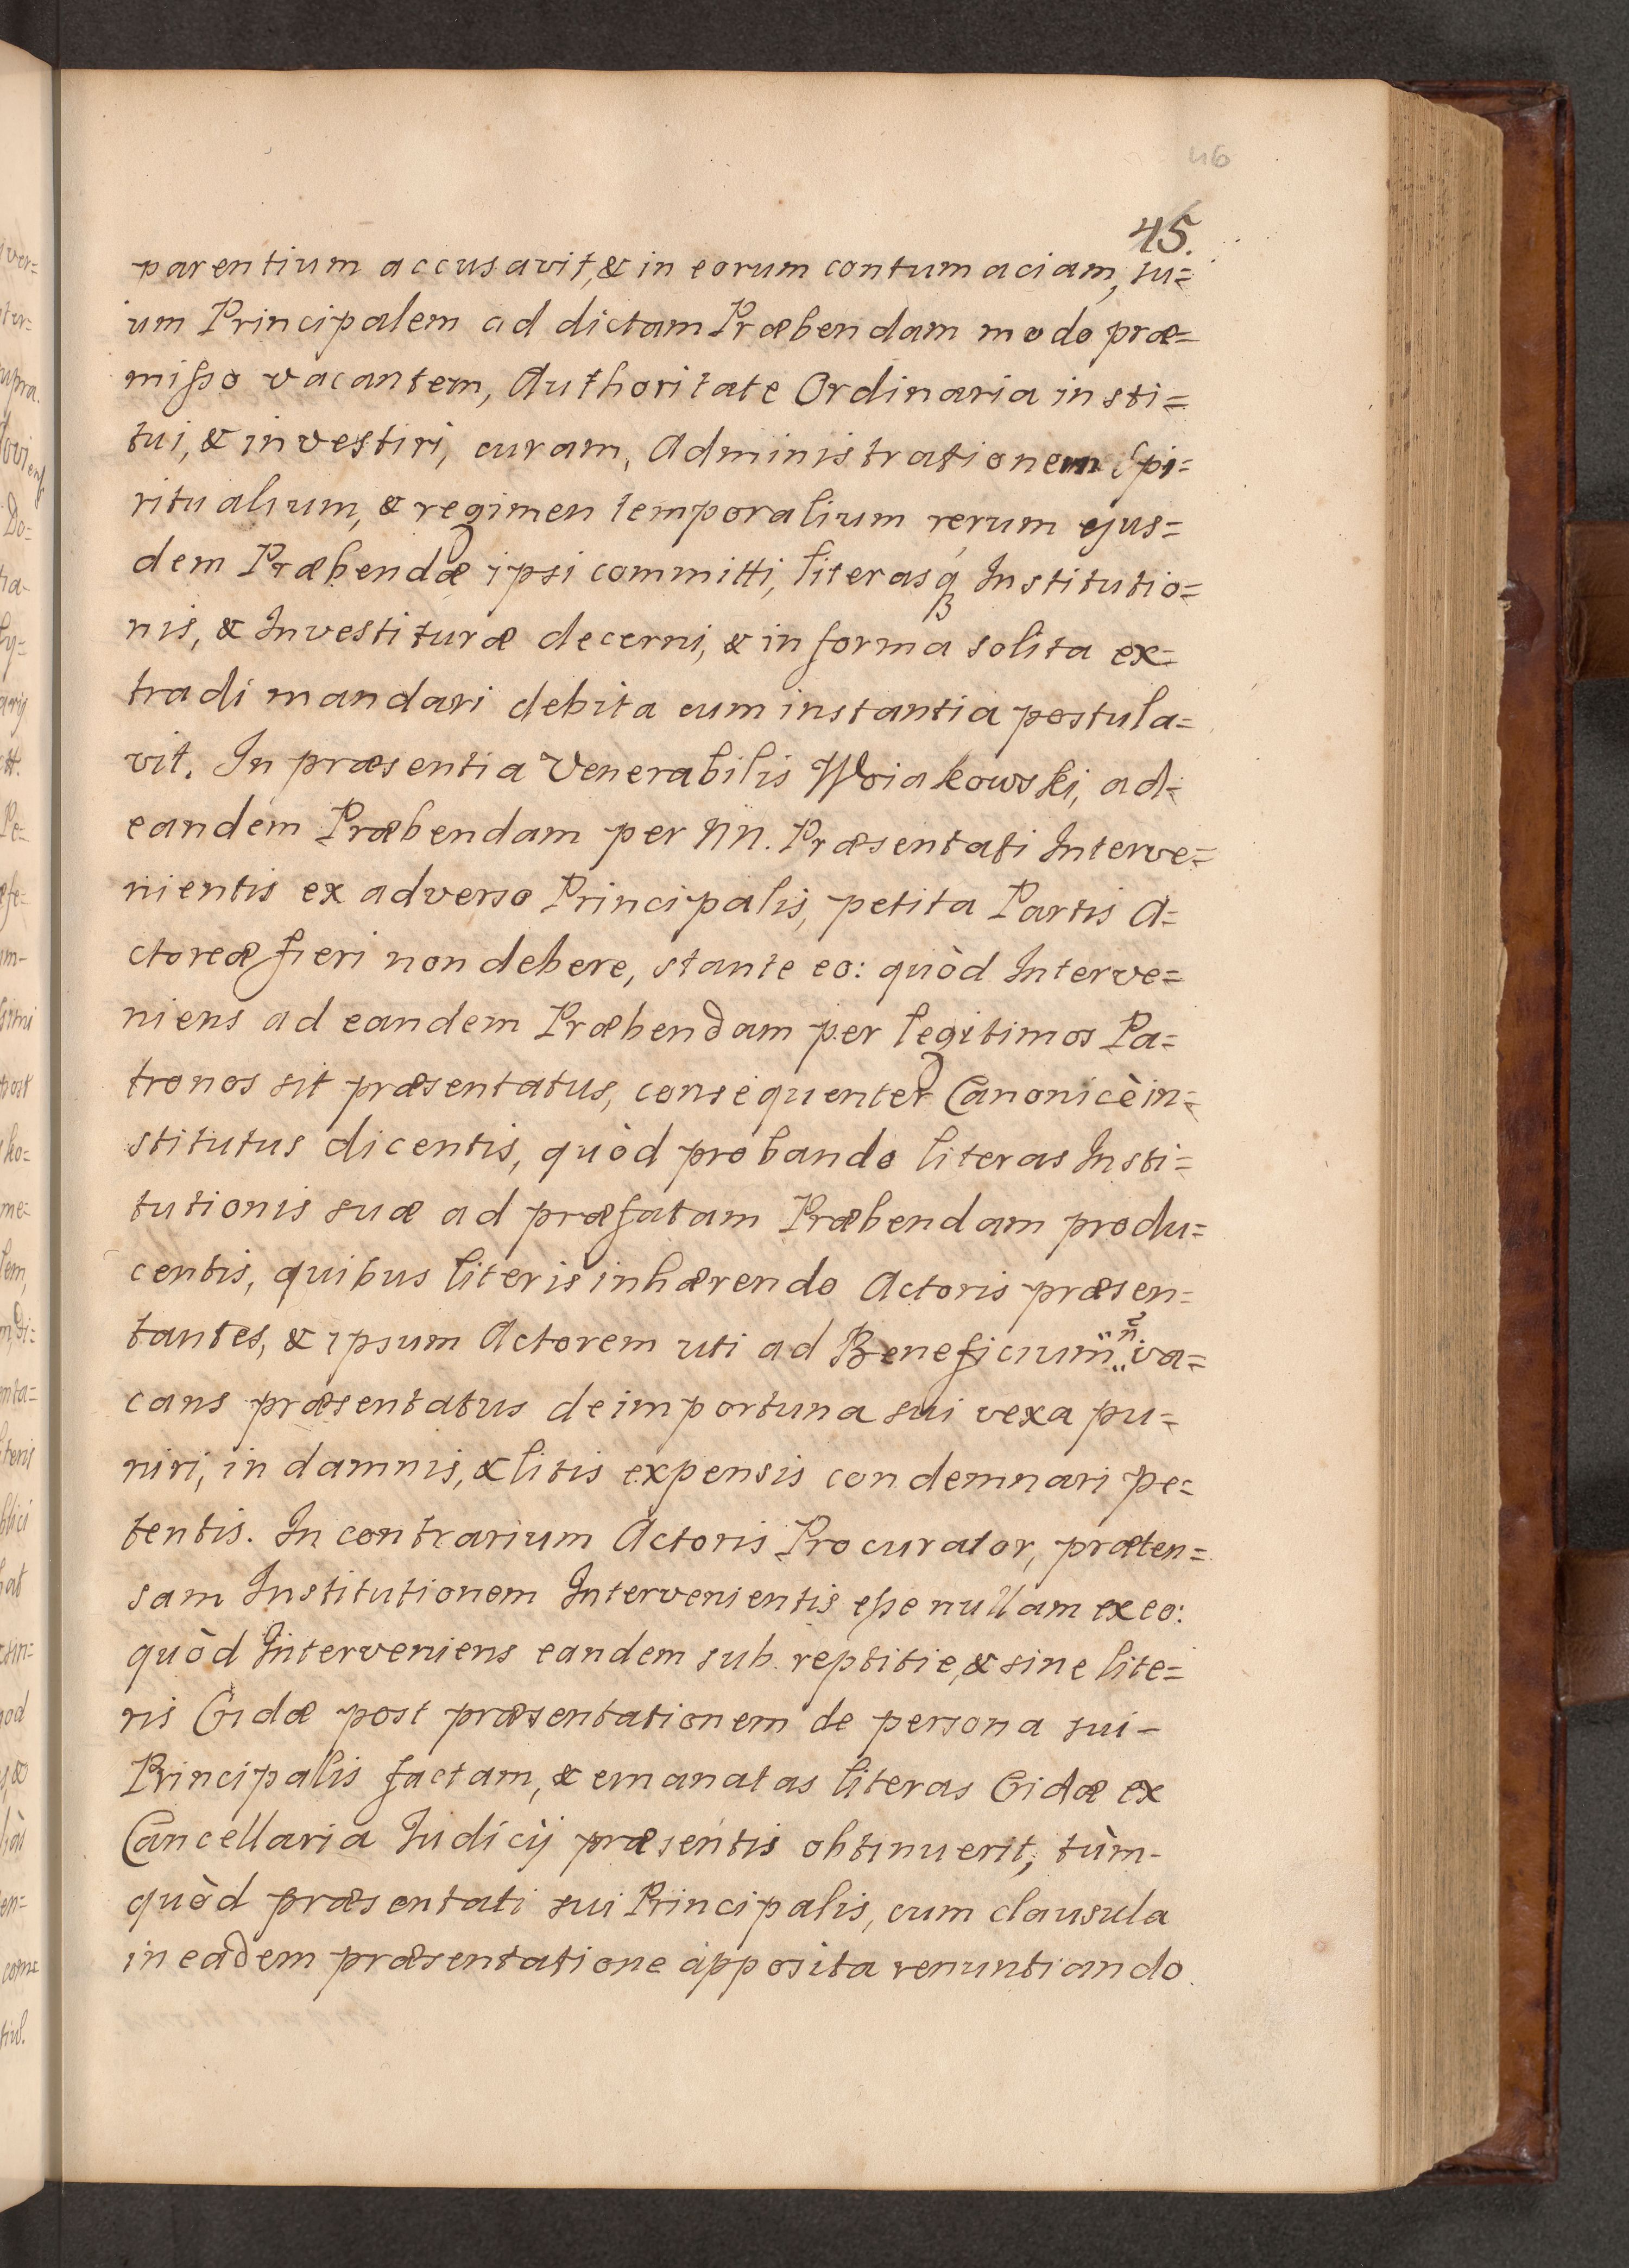 46
45.
parentium accusavit, & in eorum contumaciam, su=
um Principalem ad dictam Præbendam modo præ=
misso vacantem, Authoritate Ordinaria insti=
tui, & investiri, curam, Administrationem Spi=
ritualium, & regimen temporalium rerum ejus=
dem Præbendæ ipsi committi, literasq́ȝ Institutio=
nis, & Investituræ decerni, & in forma solita ex=
tradi mandari debita cum instantia postula=
vit. In præsentia Venerabilis Woiakowski, ad=
eandem Præbendam per NN. Præsentati Interve=
nientis ex adverso Principalis, petita Partis A=
ctoreæ fieri non debere, stante eo: quòd Interve=
niens ad eandem Præbendam per legitimos Pa=
tronos sit præsentatus, consequenter Canonicè in=
stitutus dicentis, quòd probando literas Insti=
tutionis suæ ad præfatam Præbendam produ=
centis, quibus literis inhærendo Actoris præsen=
tantes, & ipsum Actorem uti ad Beneficium va=
cans præsentatus de importuna sui vexa pu=
niri, in damnis, & litis expensis condemnari pe=
tentis. In contrarium Actoris Procurator, præten=
sam Institutionem Intervenientis esse nullam ex eo:
quòd Interveniens eandem sub reptitie, & sine lite=
ris Cridæ post præsentationem de persona sui-
Principalis factam, & emanatas literas Cridæ ex
Cancellaria Iudicij præsentis obtinuerit; tùm-
quòd præsentati sui Principalis, cum clausula
in eadem præsentatione apposita renuntiando